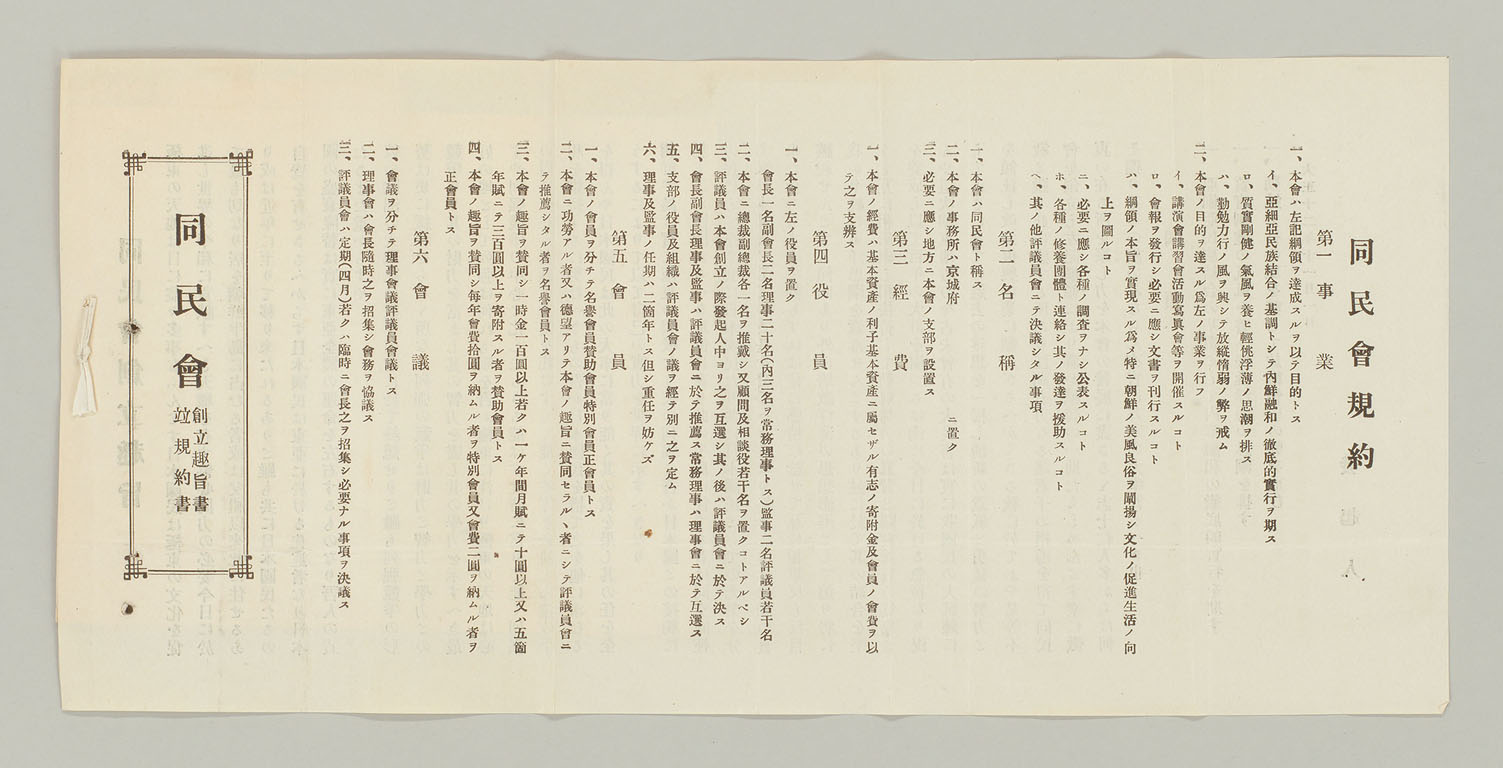 同民會規約
第一事業
一、本會ハ左記綱領ヲ達成スルヲ以テ目的トス
イ、亞細亞民族結合ノ基調トシテ內鮮融和ノ徹底的實行ヲ期ス
ロ、質實剛健ノ氣風ヲ養ヒ輕佻浮薄ノ思潮ヲ排ス
ハ、勤勉力行ノ風ヲ興シテ放縱惰弱ノ弊ヲ戒ム
二、本會ノ目的ヲ達スル爲左ノ事業ヲ行フ
イ、講演會講習會活動寫眞會等ヲ開催スルコト
ロ、會報ヲ發行シ必要ニ應シ文書ヲ刊行スルコト
ハ、綱領ノ本旨ヲ實現スル爲メ特ニ朝鮮ノ美風良俗ヲ闡揚シ文化ノ促進生活ノ向
上ヲ圖ルコト
ニ、必要ニ應シ各種ノ調査ヲナシ公表スルコト
ホ、各種ノ修養團體ト連絡シ其ノ發達ヲ援助スルコト
ヘ、其ノ他評議員會ニテ決議シタル事項
第二名稱
一、本會ハ同民會ト稱ス
二、本會ノ事務所ハ京城府 ニ置ク
三、必要ニ應シ地方ニ本會ノ支部ヲ設置ス
第三經費
一、本會ノ經費ハ基本資產ノ利子基本資產ニ屬セザル有志ノ寄附金及會員ノ會費ヲ以
テ之ヲ支辨ス
第四役員
一、本會ニ左ノ役員ヲ置ク
會長一名副會長二名理事二十名(內三名ヲ常務理事トス)監事二名評議員若干名
二、本會ニ總裁副總裁各一名ヲ推戴シ又顧問及相談役若干名ヲ置クコトアルベシ
三、評議員ハ本會創立ノ際發起人中ヨリ之ヲ互選シ其ノ後ハ評議員會ニ於テ決ス
四、會長副會長理事及監事ハ評議員會ニ於テ推薦ス常務理事ハ理事會ニ於テ互選ス
五、支部ノ役員及組織ハ評議員會ノ議ヲ經テ別ニ之ヲ定ム
六、理事及監事ノ任期ハ二箇年トス但シ重任ヲ妨ケズ
第五會員
一、本會ノ會員ヲ分チテ名譽會員贊助會員特別會員正會員トス
二、本會ニ功勞アル者又ハ德望アリテ本會ノ趣旨ニ贊同セラルヽ者ニシテ評議員會ニ
テ推薦シタル者ヲ名譽會員トス
三、本會ノ趣旨ヲ贊同シ一時金一百圓以上若クハ一ケ年間月賦ニテ十圓以上又ハ五箇
年賦ニテ三百圓以上ヲ寄附スル者ヲ贊助會員トス
四、本會ノ趣旨ヲ贊同シ每年會費拾圓ヲ納ムル者ヲ特別會員又會費二圓ヲ納ムル者ヲ
正會員トス
第六會議
一、會議ヲ分チテ理事會議評議員會議トス
二、理事會ハ會長隨時之ヲ招集シ會務ヲ協議ス
三、評議員會ハ定期(四月)若クハ臨時ニ會長之ヲ招集シ必要ナル事項ヲ決議ス
同民會
創立趣旨書
竝規約書